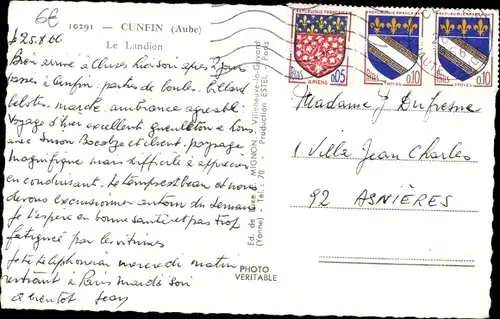 6€
10291 — CUNFIN (Aube)
Le Landion
25.8.66
Bien arrivé à Cluses hier soir après 2 jours
passés à Cunfin, parties de boules, billard
belotes, marche, ambiance agréable
Voyage d'hier excellent gueuleton à
avec Simon et client, paysage
magnifique mais difficile à apprécier
en conduisant. Le temps est beau et nous
devons excursionner autour du Léman
Je t'espère en bonne santé et pas trop
fatiguée par les vitrines
Je te téléphonerai mercredi matin
rentrant à Paris mardi soir
à bientôt Jean
Ed. de Luxe MIGNON Villeneuve-la-Guyard
(Yonne) - Tél.: 70 Production ESTEL. Paris
PHOTO
VERITABLE
RÉPUBLIQUE FRANÇAISE
POSTES 0,05
AMIENS
RÉPUBLIQUE FRANÇAISE
POSTES 0,10
TROYES
RÉPUBLIQUE FRANÇAISE
POSTES 0,10
TROYES
Madame J Dufresne
1 Villa Jean Charles
92 ASNIÈRES